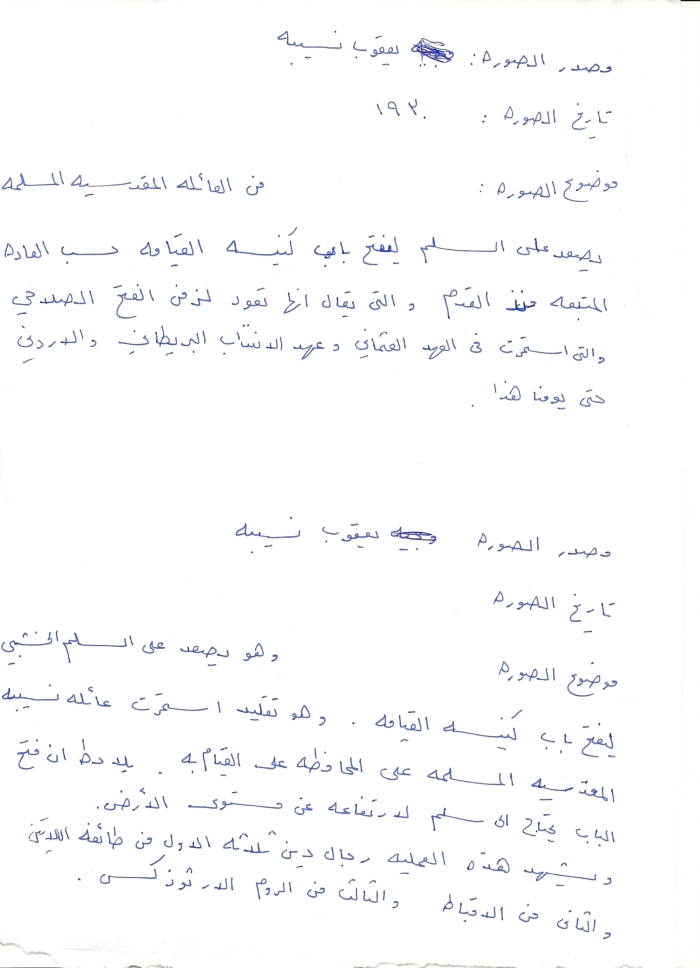 مصدر الصوره : يعقوب نسيبه
تاريخ الصوره : ١٩٣٠
موضوع الصوره : من العائله المقدسيه المسلمه
يصعد على السلم ليفتح باب كنيسه القيامه حسب العاده
المتبعه منذ القدم و التي يقال انها تعود لزمن الفتح الصلاحي
والتى استمرت فى العهد العثماني و عهد الانتداب البريطاني والاردني
حتى يومنا هذا .
مصدر الصوره يعقوب نسيبه
تاريخ الصوره
موضوع الصوره وهو يصعد على السلم الخشبي
ليفتح باب كنيسه القيامه . وهو تقليد استمرت عائله نسيبه
المقدسيه المسلمه على المحافظه على القيام به . يلاحظ ان فتح
الباب يحتاج الى سلم لارتفاعه عن مستوى الأرض .
ويشهد هذه العمليه رجال دين ثلاثه الاول من طائفه اللاتين
والثانى من الاقباط والثالث من الروم الارثوذكس .